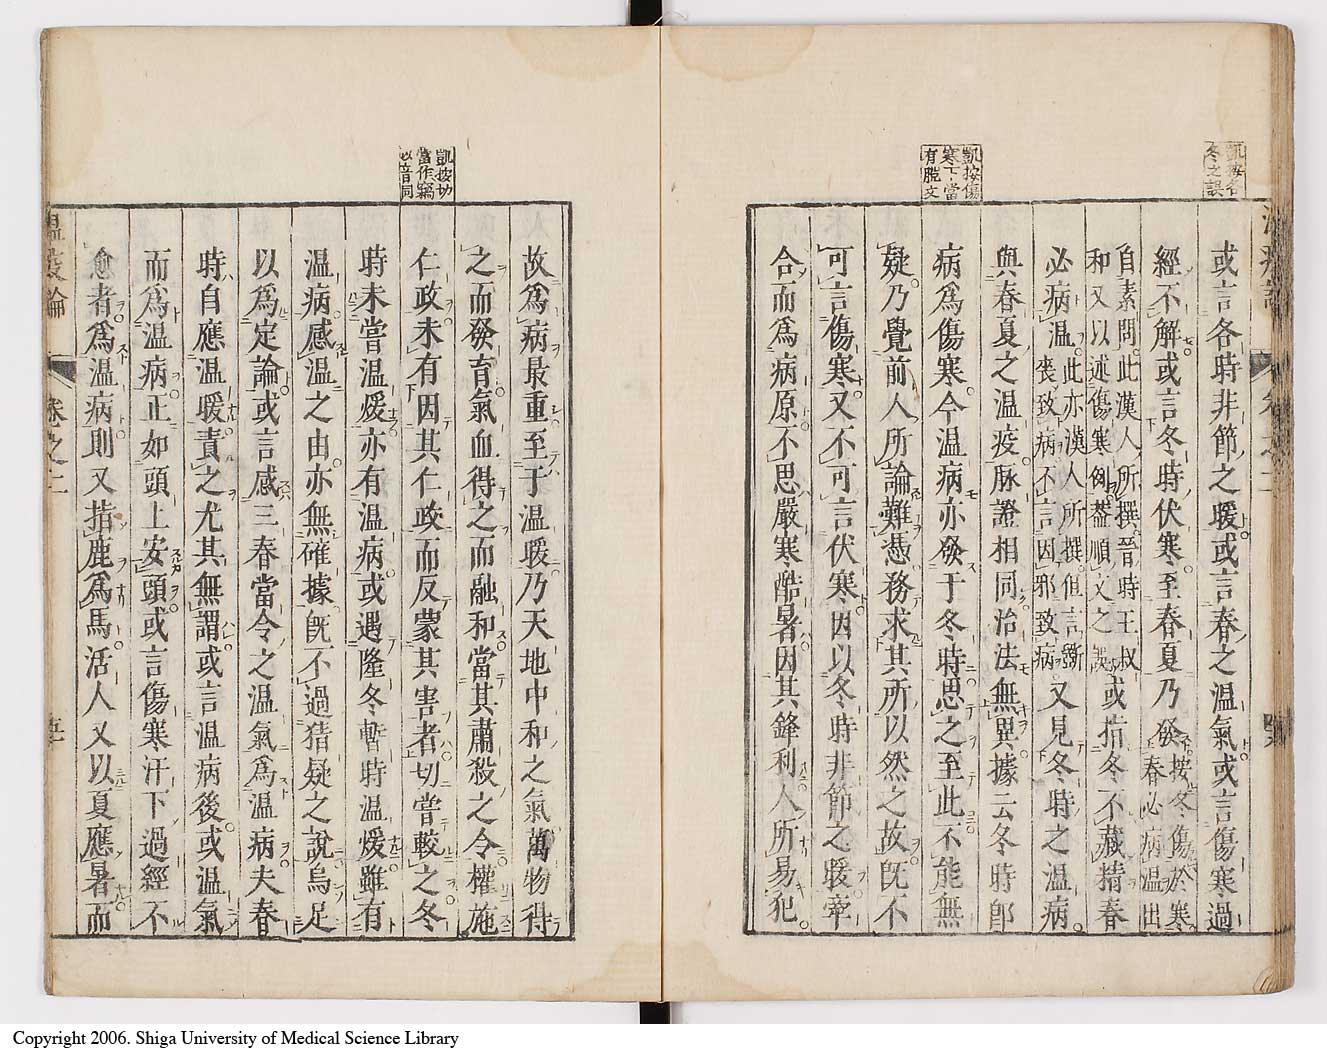 凱按各
冬之誤
或言各時非節之暖或言春之温氣或言傷寒過
經不解或言冬時伏寒至春夏乃發
按冬傷於寒
春必病温出
自素問此漢人所撰晉時王叔
和又以述傷寒例蓋順文之誤
或指冬不藏精春
必病温
此亦漢人所撰但言斲
喪致病不言因邪致病
又見冬時之温病
與春夏之温疫脉證相同治法無異據云冬時即
凱按傷
寒下當
有脱文
病爲傷寒今温病亦發于冬時思之至此不能無
疑乃覺前人所論難憑務求其所以然之故既不
可言傷寒又不可言伏寒因以冬時非節之暖牽
合而爲病原不思嚴寒酷暑因其鋒利人所易犯
故爲病最重至于温暖乃天地中和之氣萬物得
之而發育氣血得之而融和當其肅殺之令權施
凱按切
當作竊
音同
仁政未有因其仁政而反蒙其害者切嘗較之冬
時未嘗温煖亦有温病或遇隆冬暫時温煖雖有
温病感温之由亦無確據既不過猜疑之説烏足
以爲定論或言感三春當令之温氣爲温病夫春
時自應温暖責之尤其無謂或言温病後或温氣
而爲温病正如頭上安頭或言傷寒汗下過經不
愈者爲温病則又指鹿爲馬活人又以夏應暑而
温疫論 卷之二
Copyright 2006. Shiga University of Medical Science Library